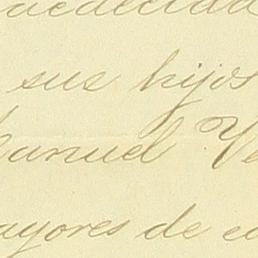 sus hijos
anuel Ve
ayores de e